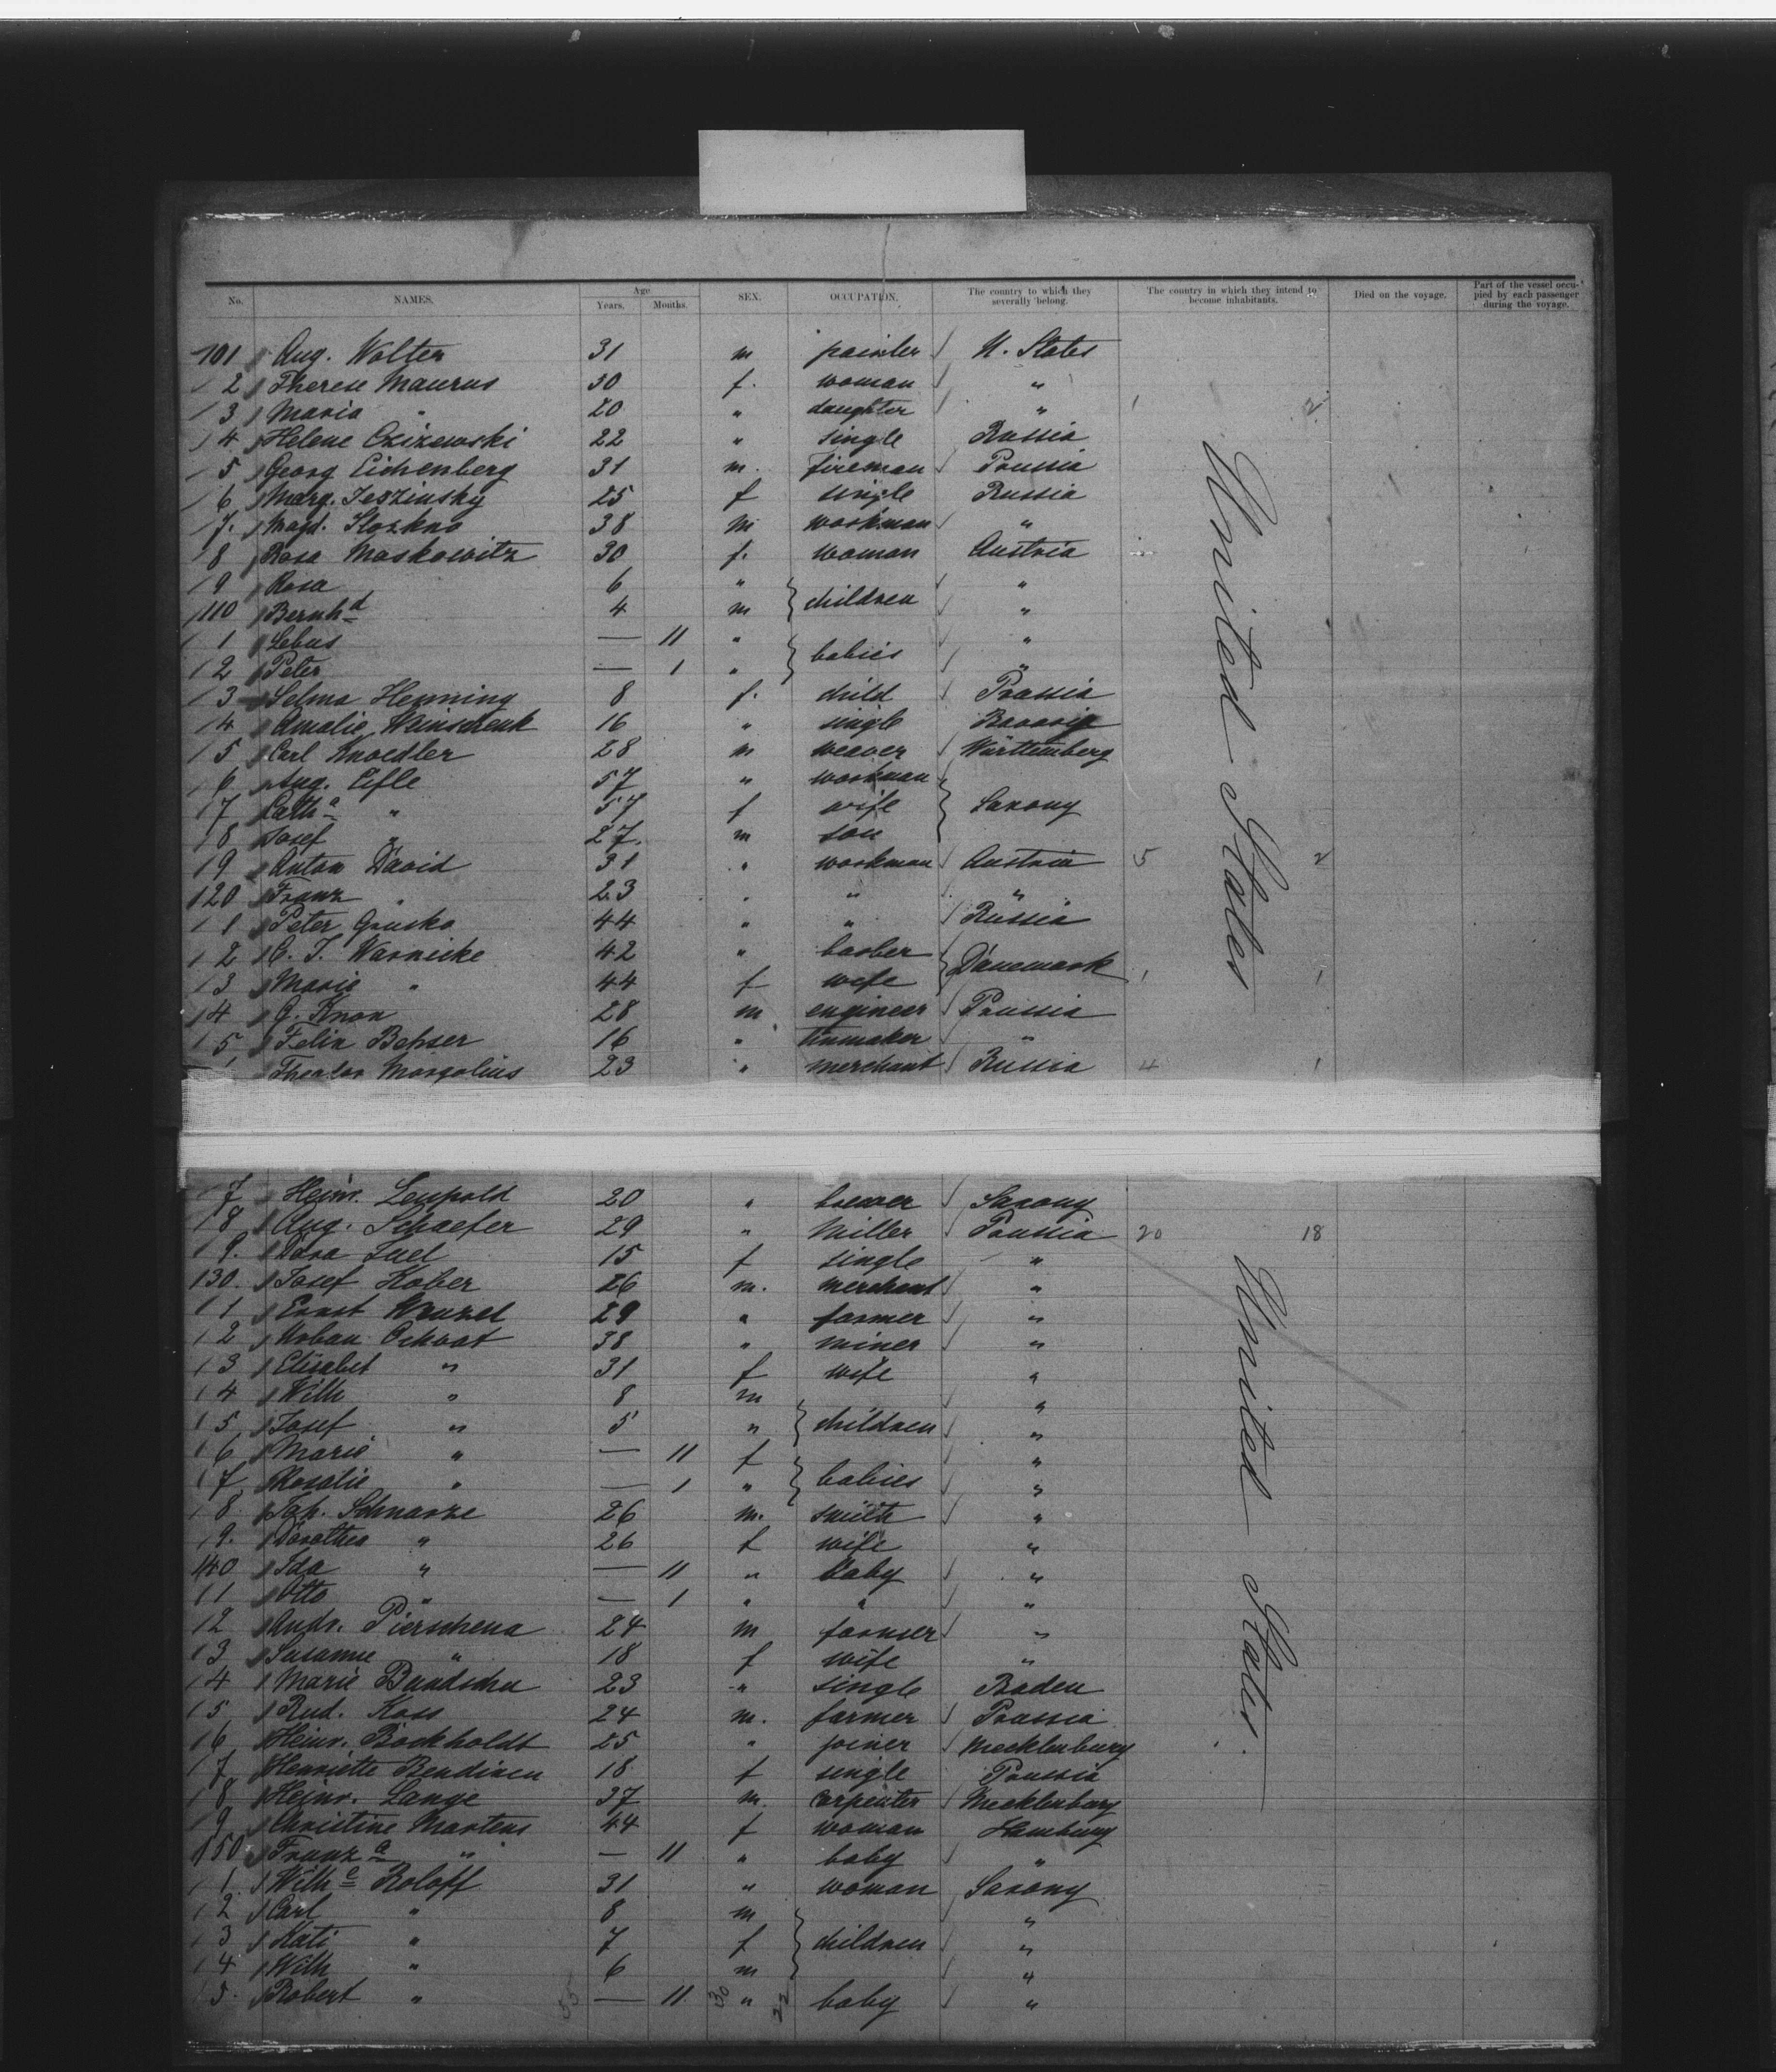 No. NAMES. Age Years. Months. SEX. OCCUPATION. The country to which they severally belong. The country in which they intend to become inhabitants. Died on the voyage. Part of the vessel occupied by each passenger during the voyage.
101 Aug. Wolter 31 m painter U. States
2 Therese Maurus 30 f. woman "
3 Maria " 20 " daughter " 1 2
4 Helene 22 " single Russia
5 Georg Eichenberg 31 m. fireman Prussia
6 Marg. 25 f single Russia
7. Magd. 38 m workman "
8 Rosa Moskowitz 30 f. woman Austria
9 Rosa 6 " children "
110 Bernhd 4 m "
1 Lebus — 11 " babies "
2 Peter — 1 " "
3 Selma Henning 8 f. child Prussia
4 Amalie Weinschenk 16 " single Bavaria
5 Carl Knoedler 28 m weaver Württemberg
6 Aug. Eifle 57 " workman Saxony
7 Catha " 57 f wife
8 Josef " 27. m son
9 Anton David 31 " workman Austria 5 2
120 Franz " 23 " " "
1 Peter 44 " " Russia
2 C. J. Warnicke 42 " barber Dänemark
3 Marie " 44 f wife 1 1
4 G. Knox 28 m engineer Prussia
5 Felix 16 " "
Theodor Margolius 23 " merchant Russia 4 1
7 Heinr. Leupold 20 " brewer Saxony
8 Aug. Schaefer 29 " Miller Prussia 20 18
9. Dora 15 f single "
130. Josef Kober 26 m. merchant "
1 Ernst Wenzel 29 " farmer "
2 Urban 38 " miner "
3 Elisabet " 31 f wife "
4 Wilh " 8 m children "
5 Josef " 5 " "
6 Marie " — 11 f babies "
7 Rosalie " — 1 " "
8. Joh. Schnarre 26 m. smith "
9. Dorothea " 26 f wife "
140 Ida " — 11 " baby "
1 Otto " — 1 " " "
2 Andr. Pierschena 24 m farmer "
3 Susanne " 18 f wife "
4 Marie Bundschu 23 " single Baden
5 Rud. Koss 24 m. farmer Prussia
6 Heinr. Bockholdt 25 " joiner Mecklenburg
7 Henriette Bendixen 18 f single Prussia
8 Heinr. Lange 37 m. carpenter Mecklenburg
9 Christine Martens 44 f woman Hamburg
150 Franza " — 11 " baby "
1. Wilhe Roloff 31 " woman Saxony
2 Carl " 8 m children "
3 Kati " 7 f "
4 Wilh " 6 m "
5. Robert " — 11. " baby "
55 30 22
United States
United States.